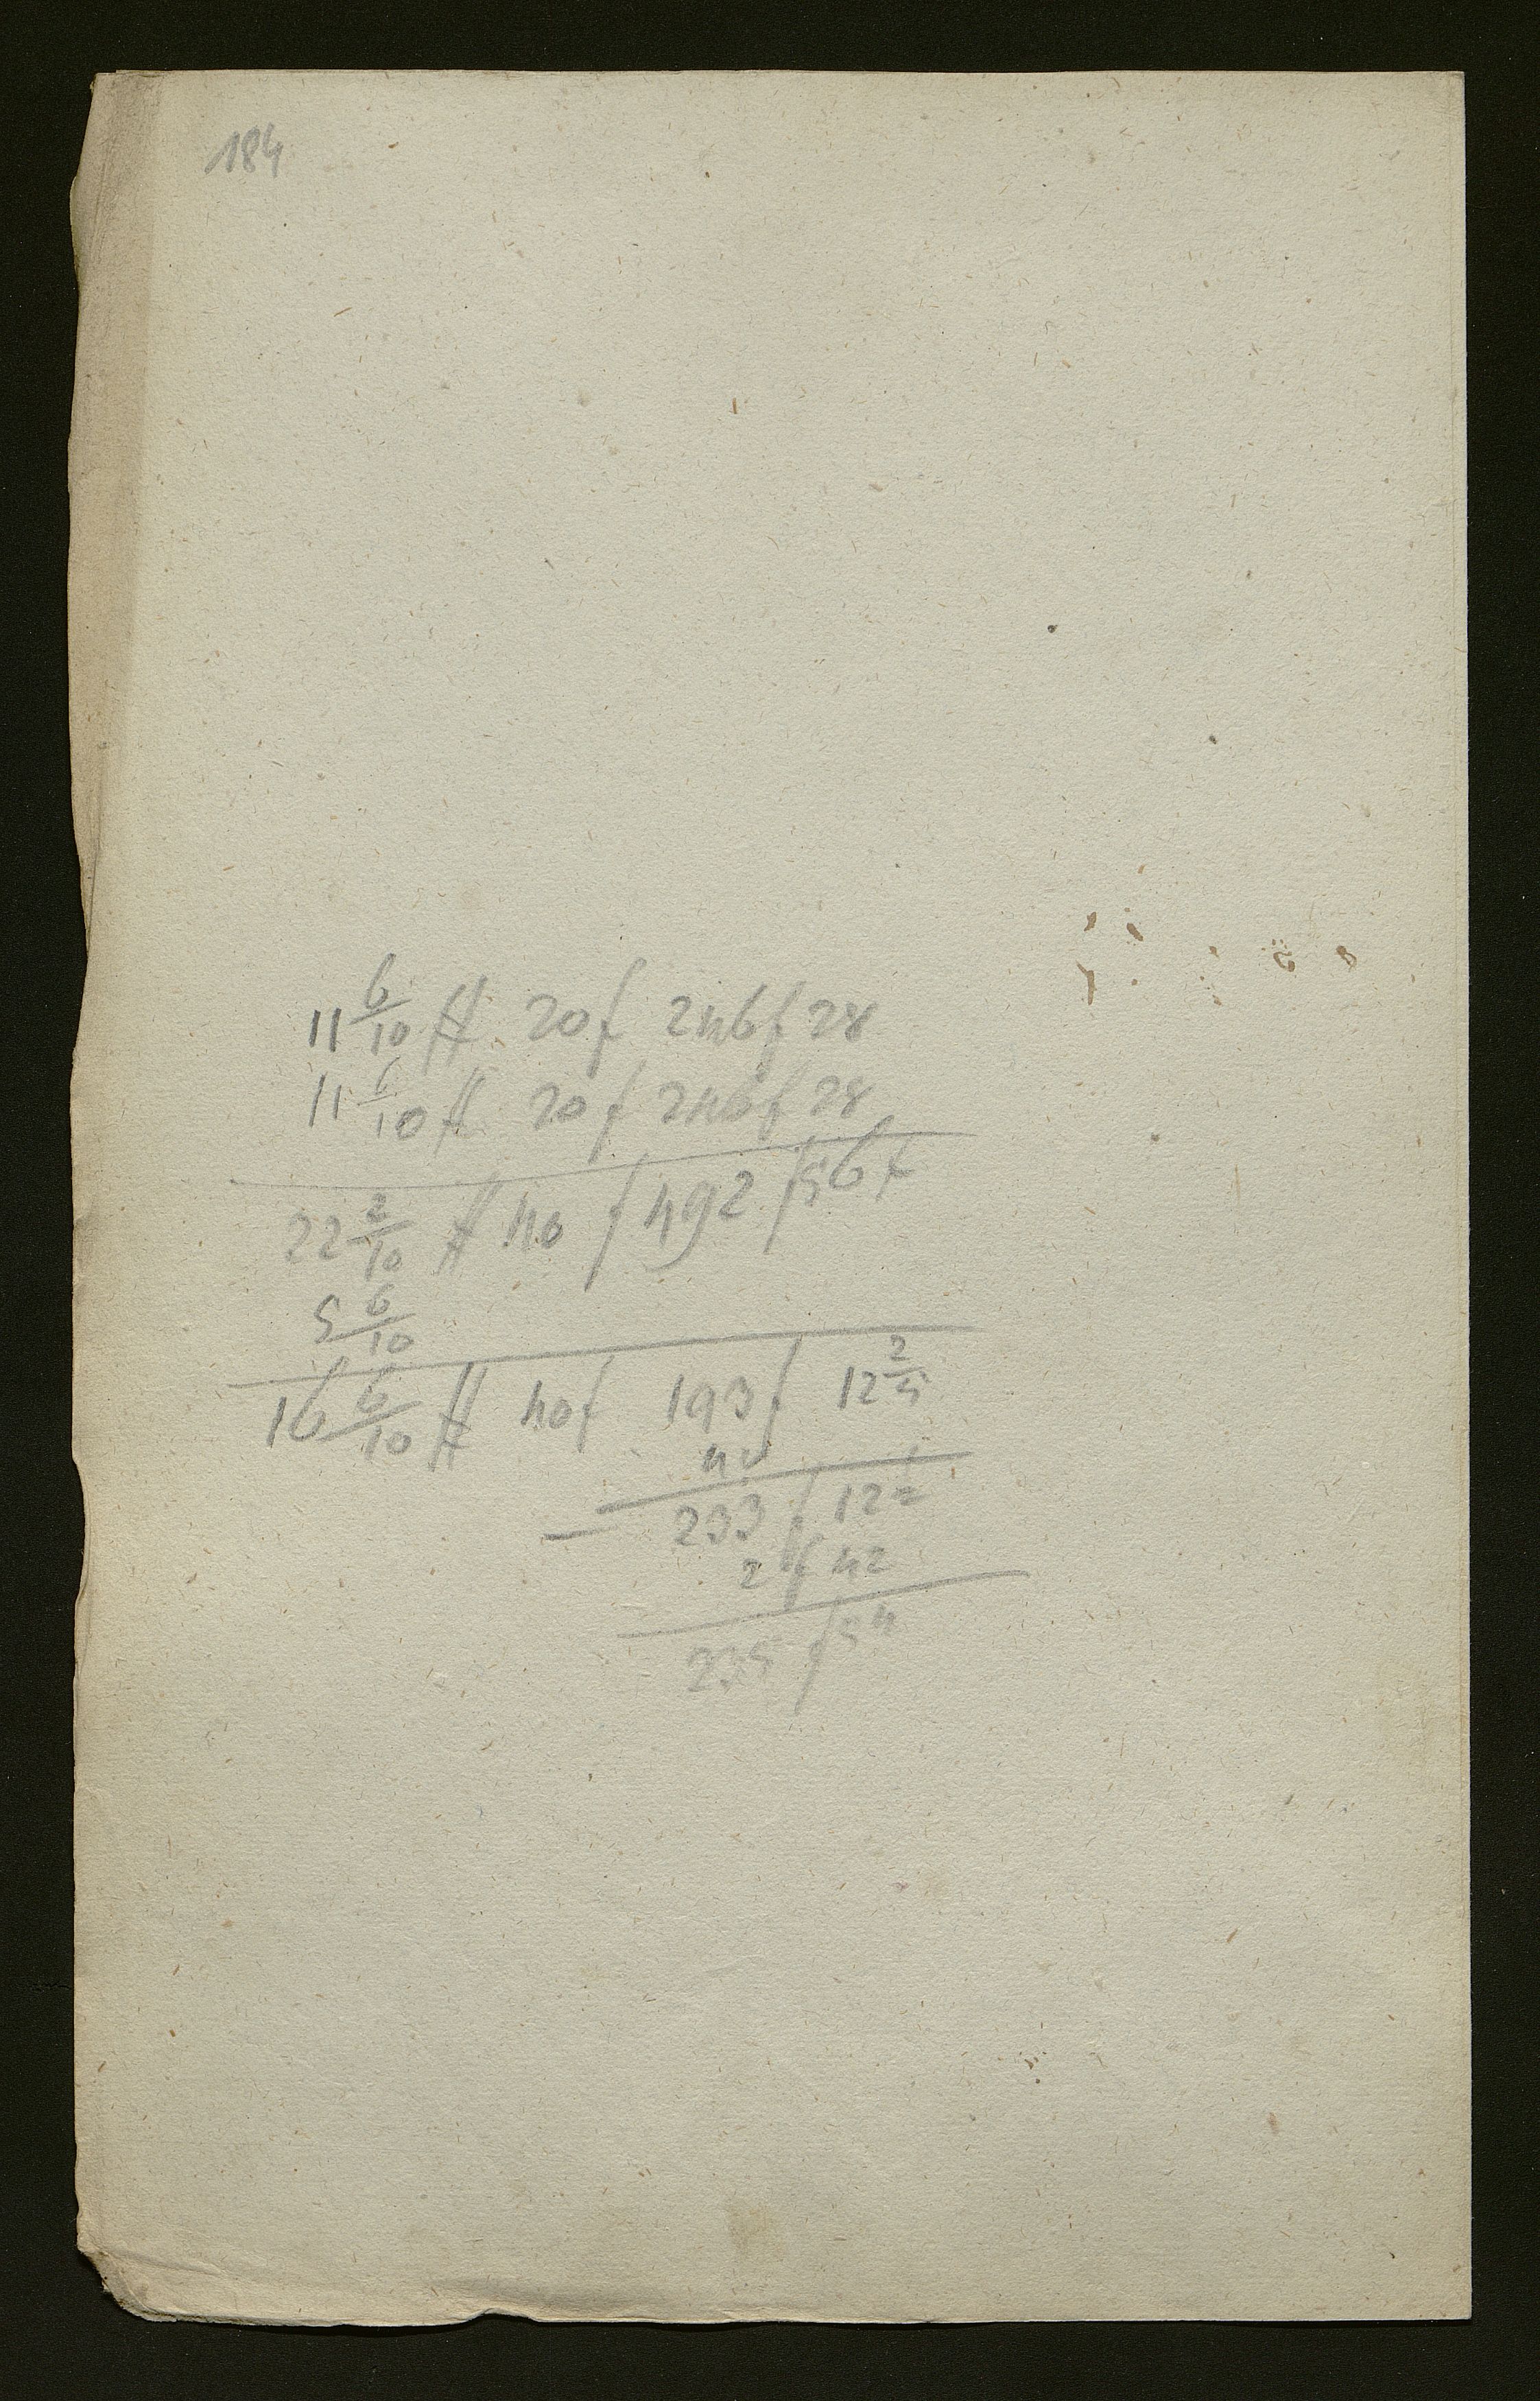 184
11 6/10 ℔ 20 f 246 f 28
11 6/10 ℔ 20 f 246 f 28
22 2/10 ℔ 40 f 492 f 56 x
5 6/10
16 6/10 ℔ 40 f 193 f 12 2/4
40
233 f 12
2 f 42
235 f 54